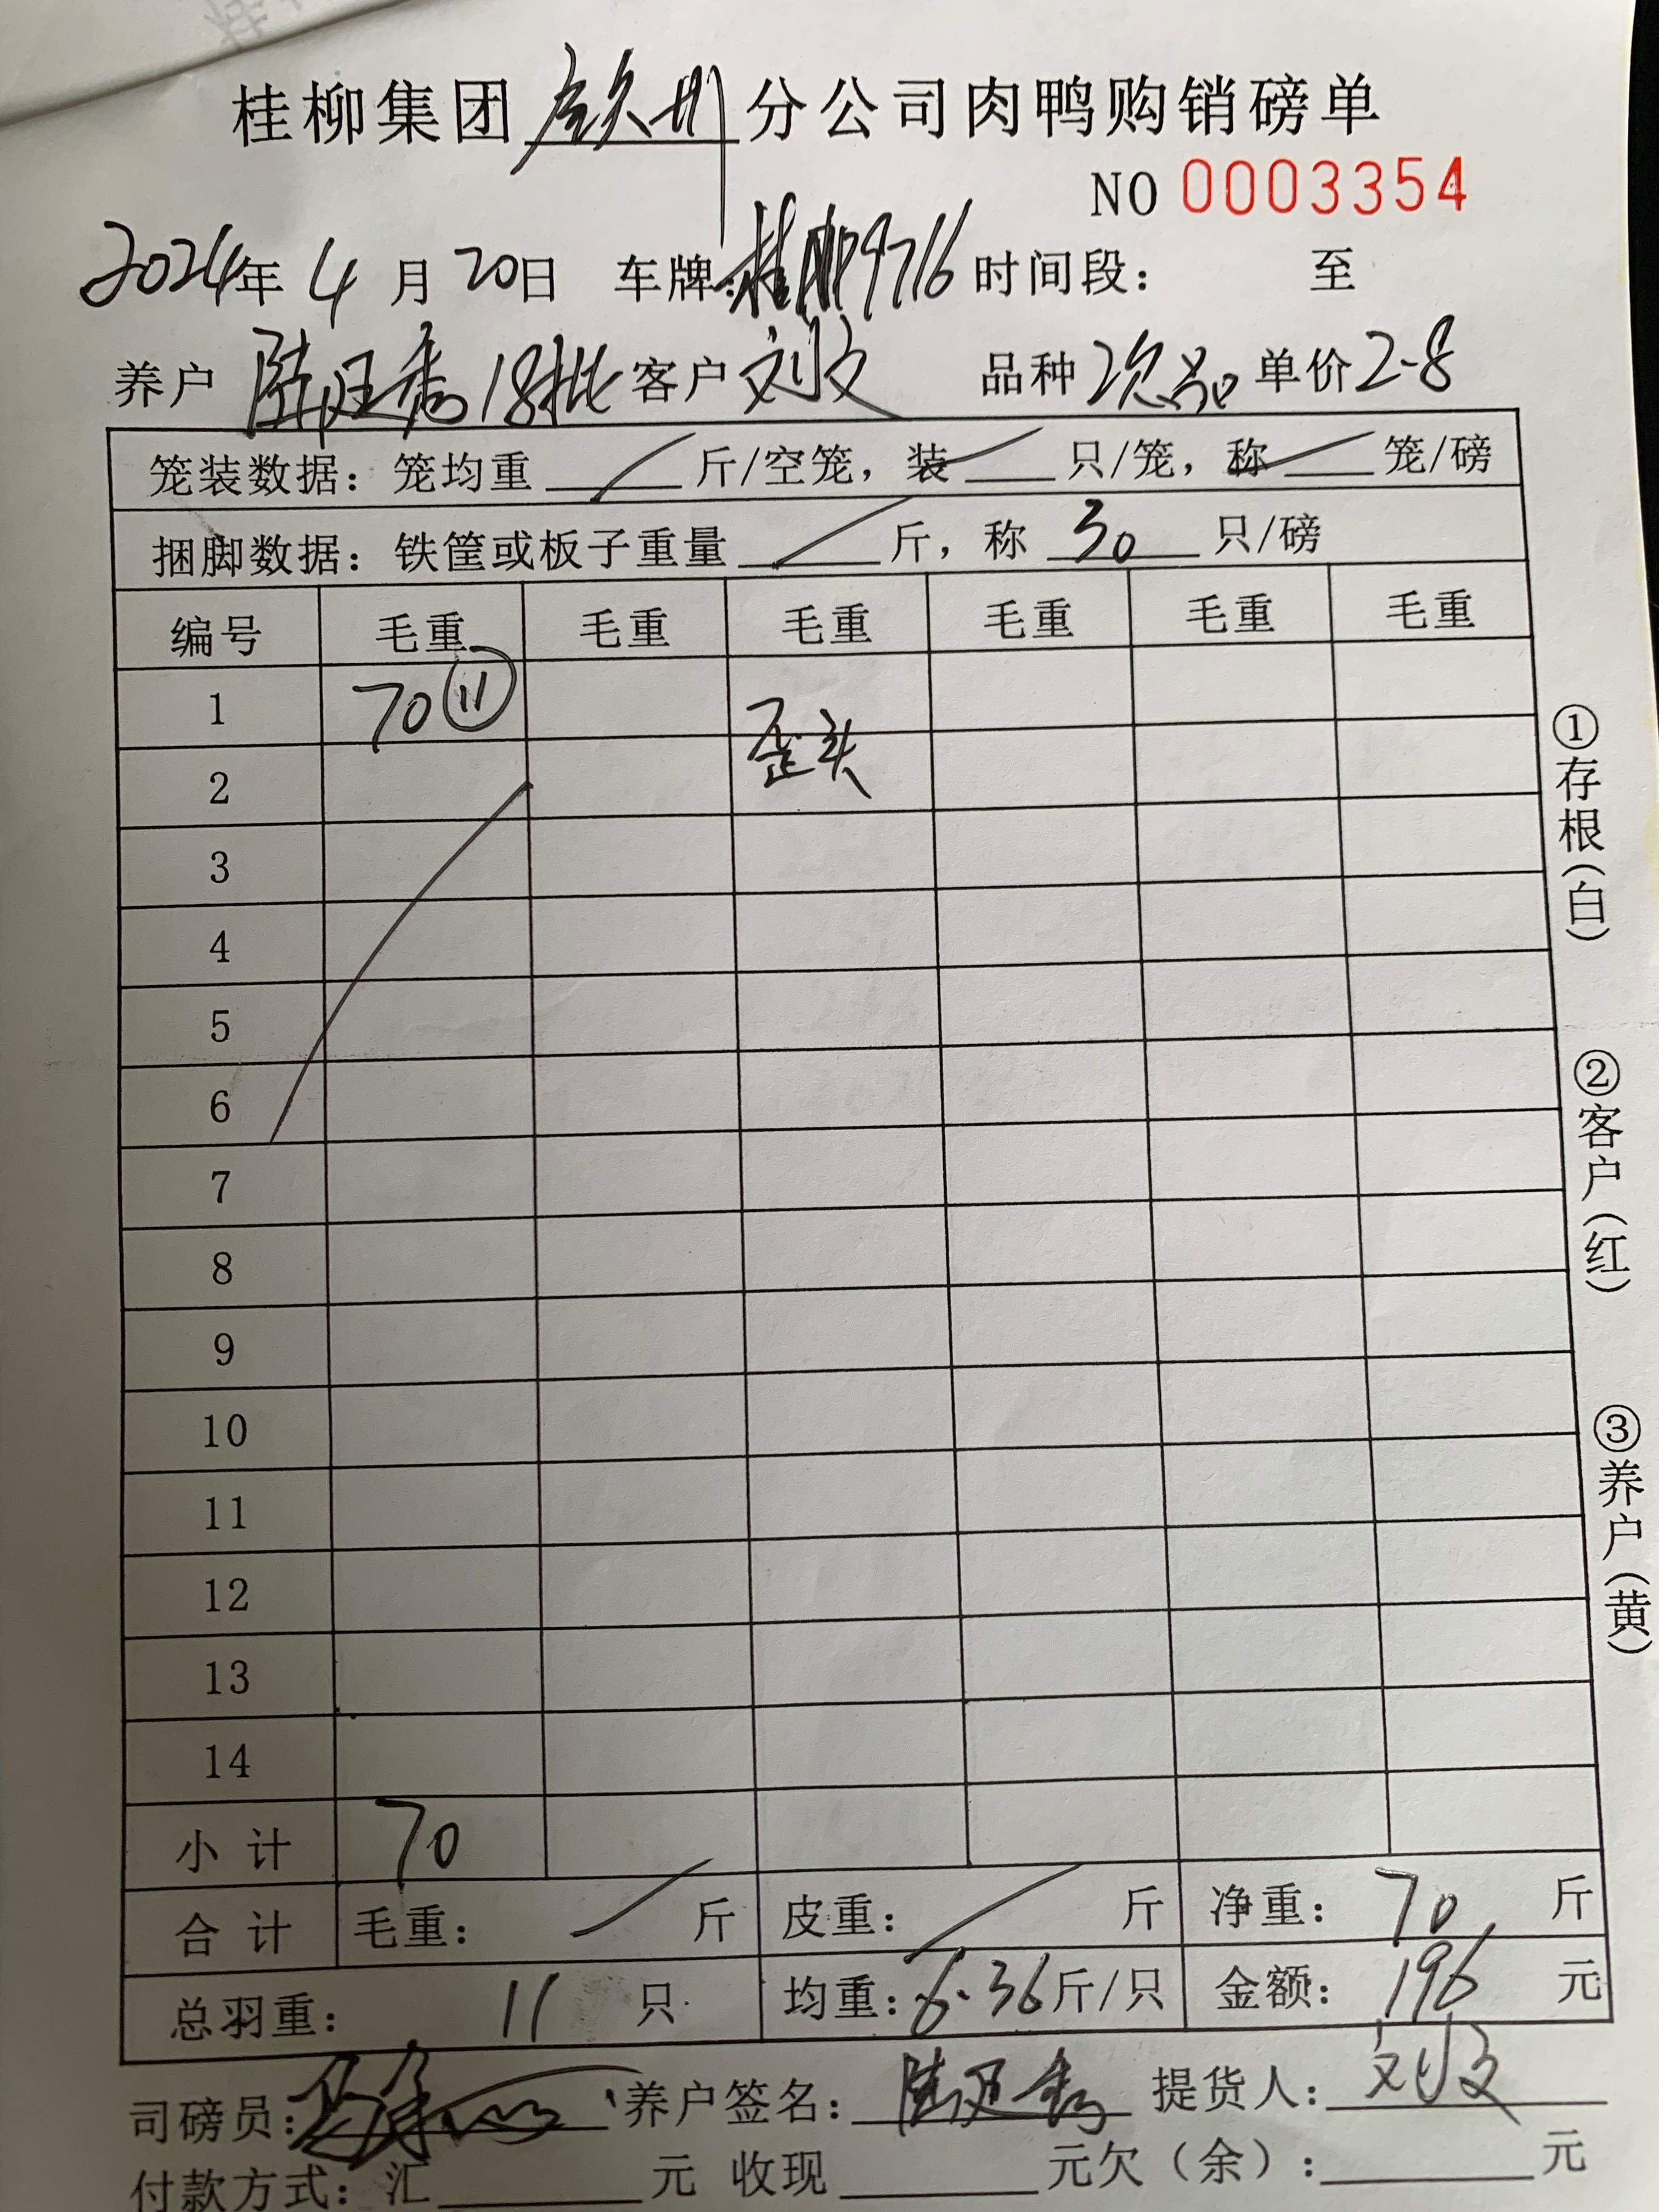 桂柳集团钦州分公司肉鸭购销磅单
NO 0003354
2024年 4 月 20日 车牌:桂 9716 时间段: 至
养户 陆旺秀18批 客户 刘文 品种 次品 单价 2-8
笼装数据:笼均重 斤/空笼,装 只/笼,称 笼/磅
捆脚数据:铁筐或板子重量 斤,称 30 只/磅
编号 毛重 毛重 毛重 毛重 毛重 毛重
1 70 ⑪
歪头
2
3
4
5
6
7
8
9
10
11
12
13
14
小计 70
合计 毛重: 斤 皮重: 斤 净重: 70 斤
总羽重: 11 只 均重:6.36斤/只 金额: 196 元
司磅员: 养户签名: 陆旺秀 提货人: 刘文
付款方式:汇 元 收现 元欠(余): 元
①存根(白)
②客户(红)
③养户(黄)